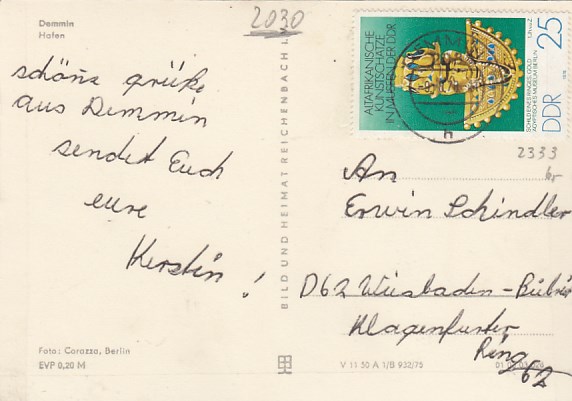 Demmin
Hafen
2030
schöne grüße
aus Demmin
sendet Euch
eure
Kerstin!
Foto: Carazza, Berlin
EVP 0,20 M
BILD UND HEIMAT REICHENBACH
V 11 50 A 1/B 932/75
ALTAFRIKANISCHE
KUNSTSCHÄTZE
IN MUSEEN DER DDR
SCHILD EINES RINGES, GOLD
ÄGYPTISCHES MUSEUM BERLIN
DDR 25
2333
An
Erwin Schindler
D62 Wiesbaden-
Klagenfurter
Ring
62